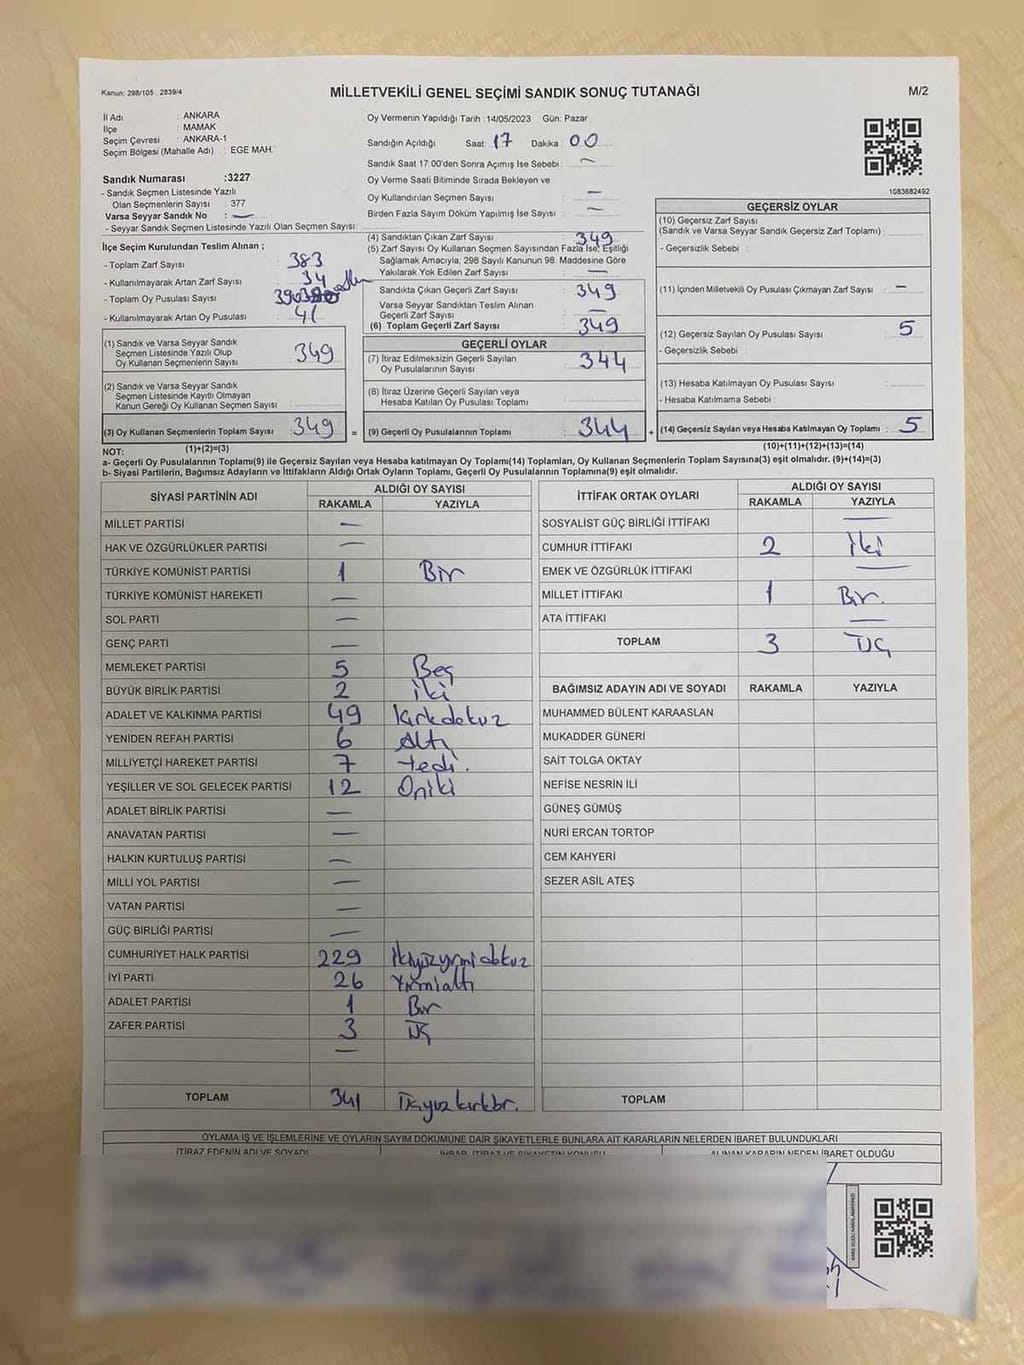 Kanun: 298/105 , 2839/4
MİLLETVEKİLİ GENEL SEÇİMİ SANDIK SONUÇ TUTANAĞI
M/2
İl Adı : ANKARA
İlçe : MAMAK
Seçim Çevresi : ANKARA-1
Seçim Bölgesi (Mahalle Adı) : EGE MAH.
Oy Vermenin Yapıldığı Tarih : 14/05/2023 Gün: Pazar
Sandığın Açıldığı Saat: 17 Dakika : 00
Sandık Saat 17:00'den Sonra Açımış İse Sebebi : —
Oy Verme Saati Bitiminde Sırada Bekleyen ve
Oy Kullandırılan Seçmen Sayısı : —
Birden Fazla Sayım Döküm Yapılmış İse Sayısı : —
1083682492
Sandık Numarası :3227
- Sandık Seçmen Listesinde Yazılı
Olan Seçmenlerin Sayısı : 377
Varsa Seyyar Sandık No : —
- Seyyar Sandık Seçmen Listesinde Yazılı Olan Seçmen Sayısı:
İlçe Seçim Kurulundan Teslim Alınan ;
- Toplam Zarf Sayısı : 383
- Kullanılmayarak Artan Zarf Sayısı : 34
- Toplam Oy Pusulası Sayısı : 390
- Kullanılmayarak Artan Oy Pusulası : 41
(1) Sandık ve Varsa Seyyar Sandık
Seçmen Listesinde Yazılı Olup
Oy Kullanan Seçmenlerin Sayısı : 349
(2) Sandık ve Varsa Seyyar Sandık
Seçmen Listesinde Kayıtlı Olmayan
Kanun Gereği Oy Kullanan Seçmen Sayısı :
(3) Oy Kullanan Seçmenlerin Toplam Sayısı : 349 =
(1)+(2)=(3)
(4) Sandıktan Çıkan Zarf Sayısı : 349
(5) Zarf Sayısı Oy Kullanan Seçmen Sayısından Fazla İse, Eşitliği
Sağlamak Amacıyla, 298 Sayılı Kanunun 98. Maddesine Göre
Yakılarak Yok Edilen Zarf Sayısı : —
Sandıkta Çıkan Geçerli Zarf Sayısı : 349
Varsa Seyyar Sandıktan Teslim Alınan
Geçerli Zarf Sayısı : —
(6) Toplam Geçerli Zarf Sayısı : 349
GEÇERLİ OYLAR
(7) İtiraz Edilmeksizin Geçerli Sayılan
Oy Pusulalarının Sayısı : 344
(8) İtiraz Üzerine Geçerli Sayılan veya
Hesaba Katılan Oy Pusulası Toplamı :
(9) Geçerli Oy Pusulalarının Toplamı : 344 +
GEÇERSİZ OYLAR
(10) Geçersiz Zarf Sayısı
(Sandık ve Varsa Seyyar Sandık Geçersiz Zarf Toplamı) :
- Geçersizlik Sebebi :
(11) İçinden Milletvekili Oy Pusulası Çıkmayan Zarf Sayısı : —
(12) Geçersiz Sayılan Oy Pusulası Sayısı : 5
- Geçersizlik Sebebi :
(13) Hesaba Katılmayan Oy Pusulası Sayısı :
- Hesaba Katılmama Sebebi :
(14) Geçersiz Sayılan veya Hesaba Katılmayan Oy Toplamı : 5
(10)+(11)+(12)+(13)=(14)
NOT:
a- Geçerli Oy Pusulalarının Toplamı(9) ile Geçersiz Sayılan veya Hesaba katılmayan Oy Toplamı(14) Toplamları, Oy Kullanan Seçmenlerin Toplam Sayısına(3) eşit olmalıdır. (9)+(14)=(3)
b- Siyasi Partilerin, Bağımsız Adayların ve İttifakların Aldığı Ortak Oyların Toplamı, Geçerli Oy Pusulalarının Toplamına(9) eşit olmalıdır.
SİYASİ PARTİNİN ADI ALDIĞI OY SAYISI
RAKAMLA YAZIYLA
MİLLET PARTİSİ —
HAK VE ÖZGÜRLÜKLER PARTİSİ —
TÜRKİYE KOMÜNİST PARTİSİ 1 Bir
TÜRKİYE KOMÜNİST HAREKETİ —
SOL PARTİ —
GENÇ PARTİ —
MEMLEKET PARTİSİ 5 Beş
BÜYÜK BİRLİK PARTİSİ 2 iki
ADALET VE KALKINMA PARTİSİ 49 kırkdokuz
YENİDEN REFAH PARTİSİ 6 Altı
MİLLİYETÇİ HAREKET PARTİSİ 7 Yedi.
YEŞİLLER VE SOL GELECEK PARTİSİ 12 Oniki
ADALET BİRLİK PARTİSİ —
ANAVATAN PARTİSİ —
HALKIN KURTULUŞ PARTİSİ —
MİLLİ YOL PARTİSİ —
VATAN PARTİSİ —
GÜÇ BİRLİĞİ PARTİSİ —
CUMHURİYET HALK PARTİSİ 229 ikiyüzyirmidokuz
İYİ PARTİ 26 Yirmialtı
ADALET PARTİSİ 1 Bir
ZAFER PARTİSİ 3 üç
—
TOPLAM 341 üçyüzkırkbir.
İTTİFAK ORTAK OYLARI ALDIĞI OY SAYISI
RAKAMLA YAZIYLA
SOSYALİST GÜÇ BİRLİĞİ İTTİFAKI —
CUMHUR İTTİFAKI 2 iki
EMEK VE ÖZGÜRLÜK İTTİFAKI —
MİLLET İTTİFAKI 1 Bir.
ATA İTTİFAKI —
TOPLAM 3 üç
BAĞIMSIZ ADAYIN ADI VE SOYADI RAKAMLA YAZIYLA
MUHAMMED BÜLENT KARAASLAN
MUKADDER GÜNERİ
SAİT TOLGA OKTAY
NEFİSE NESRİN İLİ
GÜNEŞ GÜMÜŞ
NURİ ERCAN TORTOP
CEM KAHYERİ
SEZER ASİL ATEŞ
TOPLAM
OYLAMA İŞ VE İŞLEMLERİNE VE OYLARIN SAYIM DÖKÜMÜNE DAİR ŞİKAYETLERLE BUNLARA AİT KARARLARIN NELERDEN İBARET BULUNDUKLARI
İTİRAZ EDENİN ADI VE SOYADI İHBAR, İTİRAZ VE ŞİKAYETİN KONUSU ALINAN KARARIN NEDEN İBARET OLDUĞU